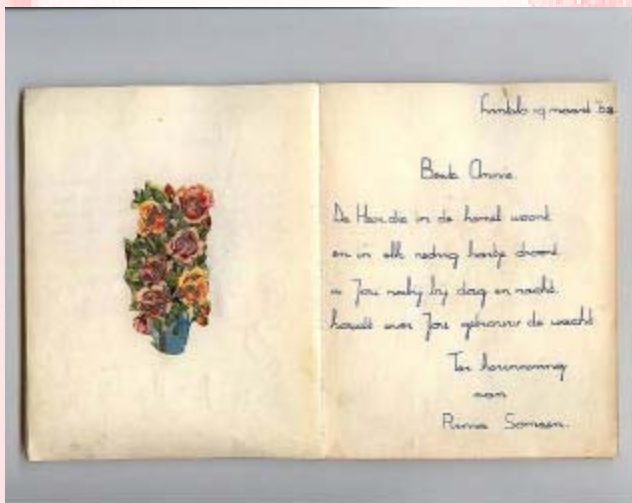 19 maart '53
Beste Annie.
De Heer, die in de hemel woont
en in elk nedrig hartje droont
is Jou nabij bij dag en nacht.
houdt over Jou getrouw de wacht
Ter herinnering
aan
Somsen.